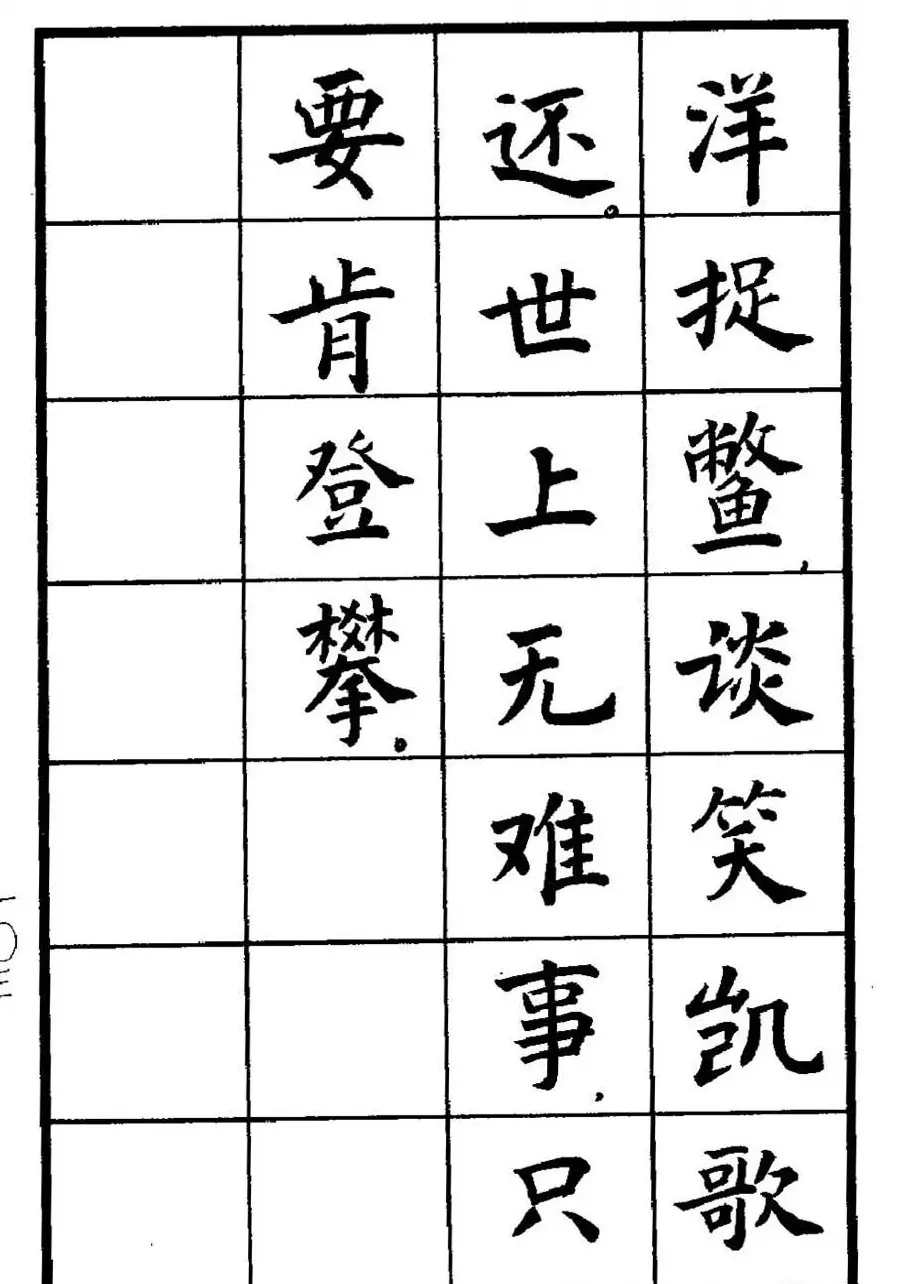 洋捉鳖，谈笑凯歌
还。世上无难事，只
要肯登攀。
一〇三